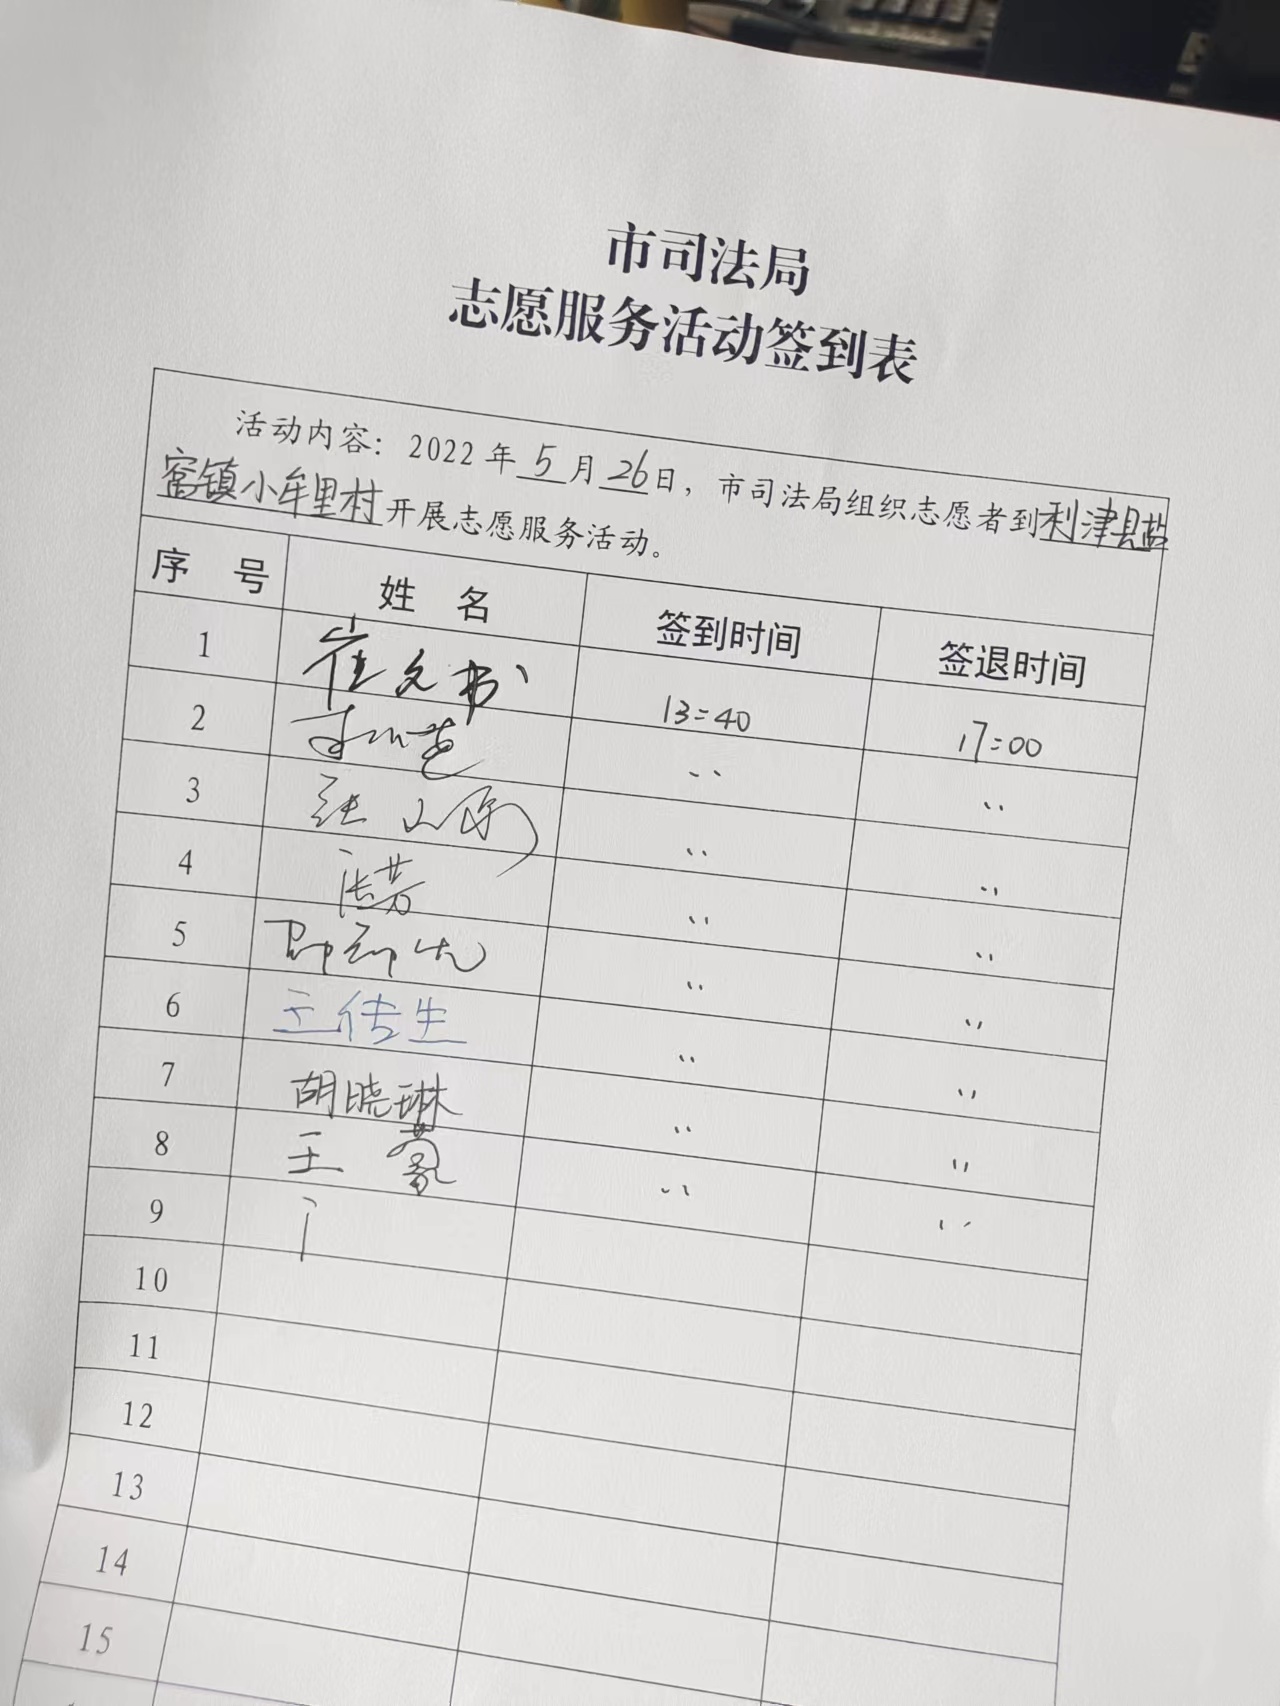 市司法局
志愿服务活动签到表
活动内容：2022年5月26日，市司法局组织志愿者到利津县盐
窝镇小牟里村开展志愿服务活动。
序 号 姓 名 签到时间 签退时间
1 崔文书 13:40 17:00
2 〃 〃
3 〃 〃
4 〃 〃
5 〃 〃
6 王传生 〃 〃
7 胡晓琳 〃 〃
8 王 〃 〃
9
10
11
12
13
14
15